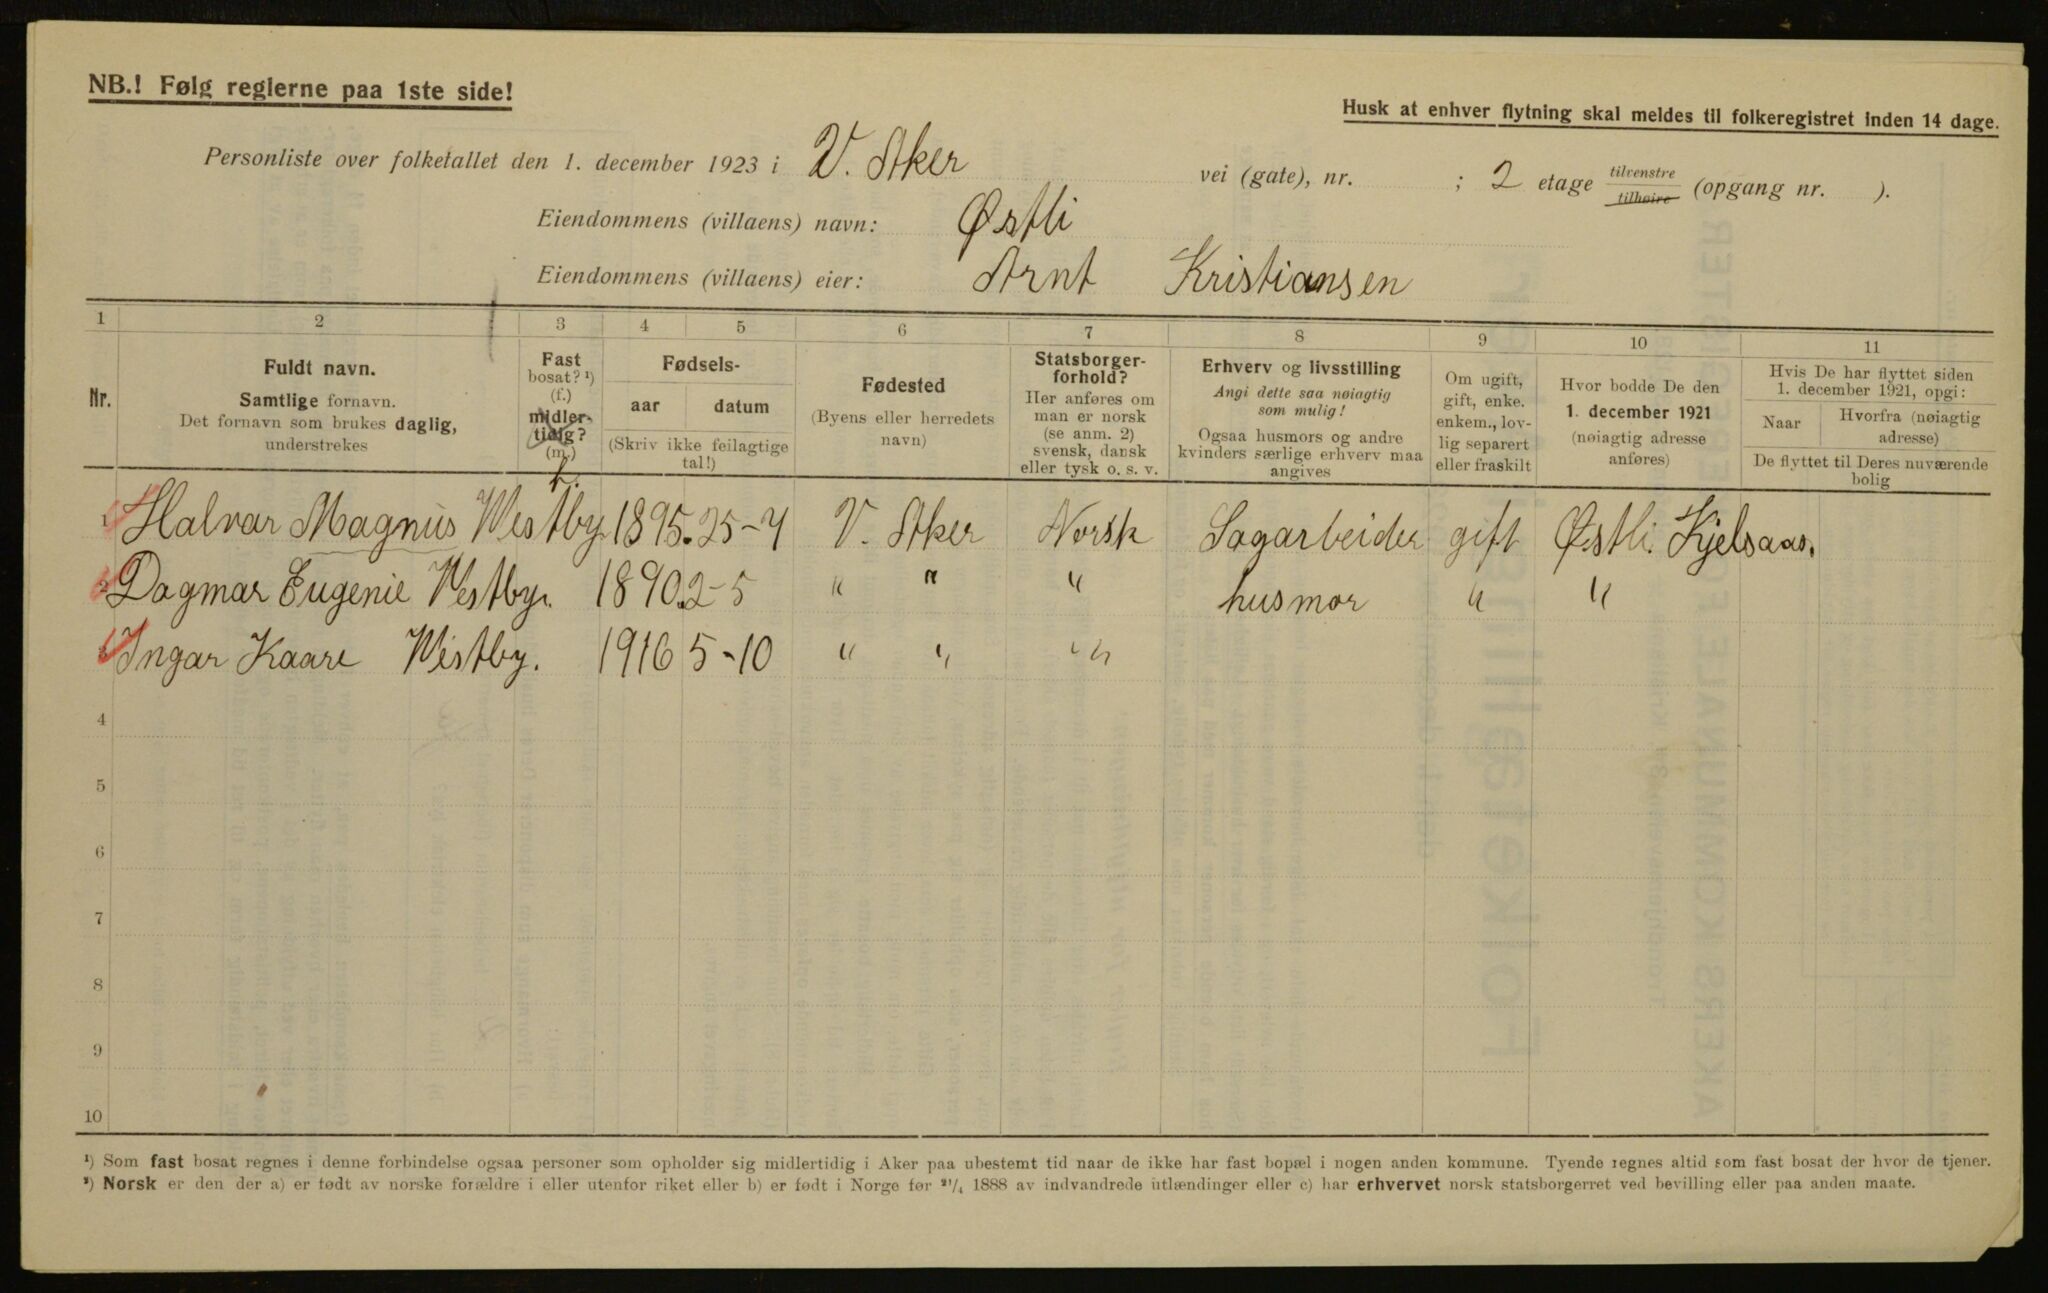 NB.! Følg reglerne paa 1ste side!
Husk at enhver flytning skal meldes til folkeregistret inden 14 dage.
Personliste over folketallet den 1. december 1923 i V. Aker vei (gate), nr. ; 2 etage tilvenstre tilhøire (opgang nr. ).
Eiendommens (villaens) navn: Østli
Eiendommens (villaens) eier: Arnt Kristiansen
1 2 3 4 5 6 7 8 9 10 11
Nr.
Fuldt navn.
Samtlige fornavn.
Det fornavn som brukes daglig,
understrekes
Fast
bosat? ¹)
(f.)
midler-
tidig?
(m.)
Fødsels-
aar datum
(Skriv ikke feilagtige
tal!)
Fødested
(Byens eller herredets
navn)
Statsborger-
forhold?
Her anføres om
man er norsk
(se anm. 2)
svensk, dansk
eller tysk o. s. v.
Erhverv og livsstilling
Angi dette saa nøiagtig
som mulig!
Ogsaa husmors og andre
kvinders særlige erhverv maa
angives
Om ugift,
gift, enke.
enkem., lov-
lig separert
eller fraskilt
Hvor bodde De den
1. december 1921
(nøiagtig adresse
anføres)
Hvis De har flyttet siden
1. december 1921, opgi:
Naar Hvorfra (nøiagtig
adresse)
De flyttet til Deres nuværende
bolig
f.
1 Halvar Magnus Westby 1895. 25-4 V. Aker Norsk Sagarbeider gift Østli. Kjelsaas.
2 Dagmar Eugenie Westby. 1890. 2-5 " " " husmor " "
3 Ingar Kaare Westby. 1916 5-10 " " "
4
5
6
7
8
9
10
¹) Som fast bosat regnes i denne forbindelse ogsaa personer som opholder sig midlertidig i Aker paa ubestemt tid naar de ikke har fast bopæl i nogen anden kommune. Tyende regnes altid som fast bosat der hvor de tjener.
²) Norsk er den der a) er født av norske forældre i eller utenfor riket eller b) er født i Norge før ²¹/₄ 1888 av indvandrede utlændinger eller c) har erhvervet norsk statsborgerret ved bevilling eller paa anden maate.